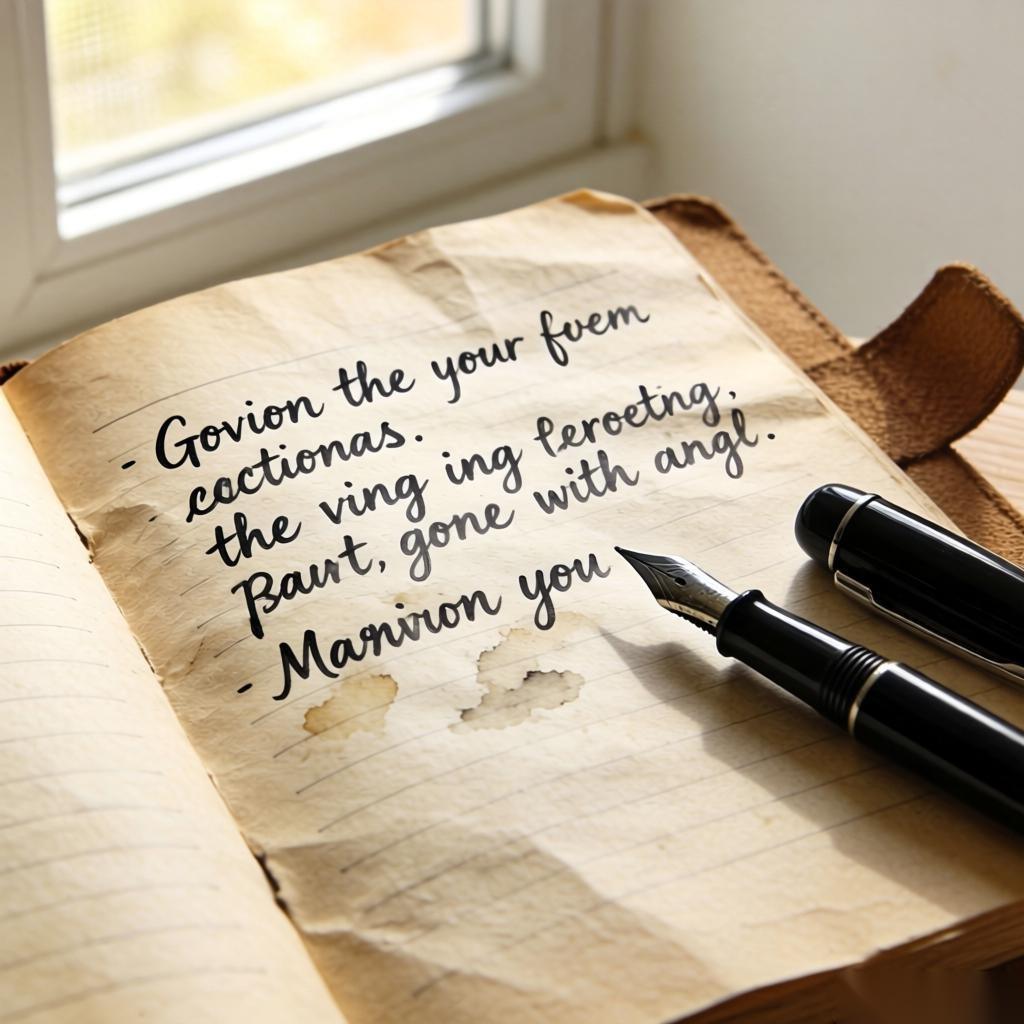 - Govion the your fvem
cectionas.
the ving ing feroetng,
Baurt, gone with angl.
- Manviron you